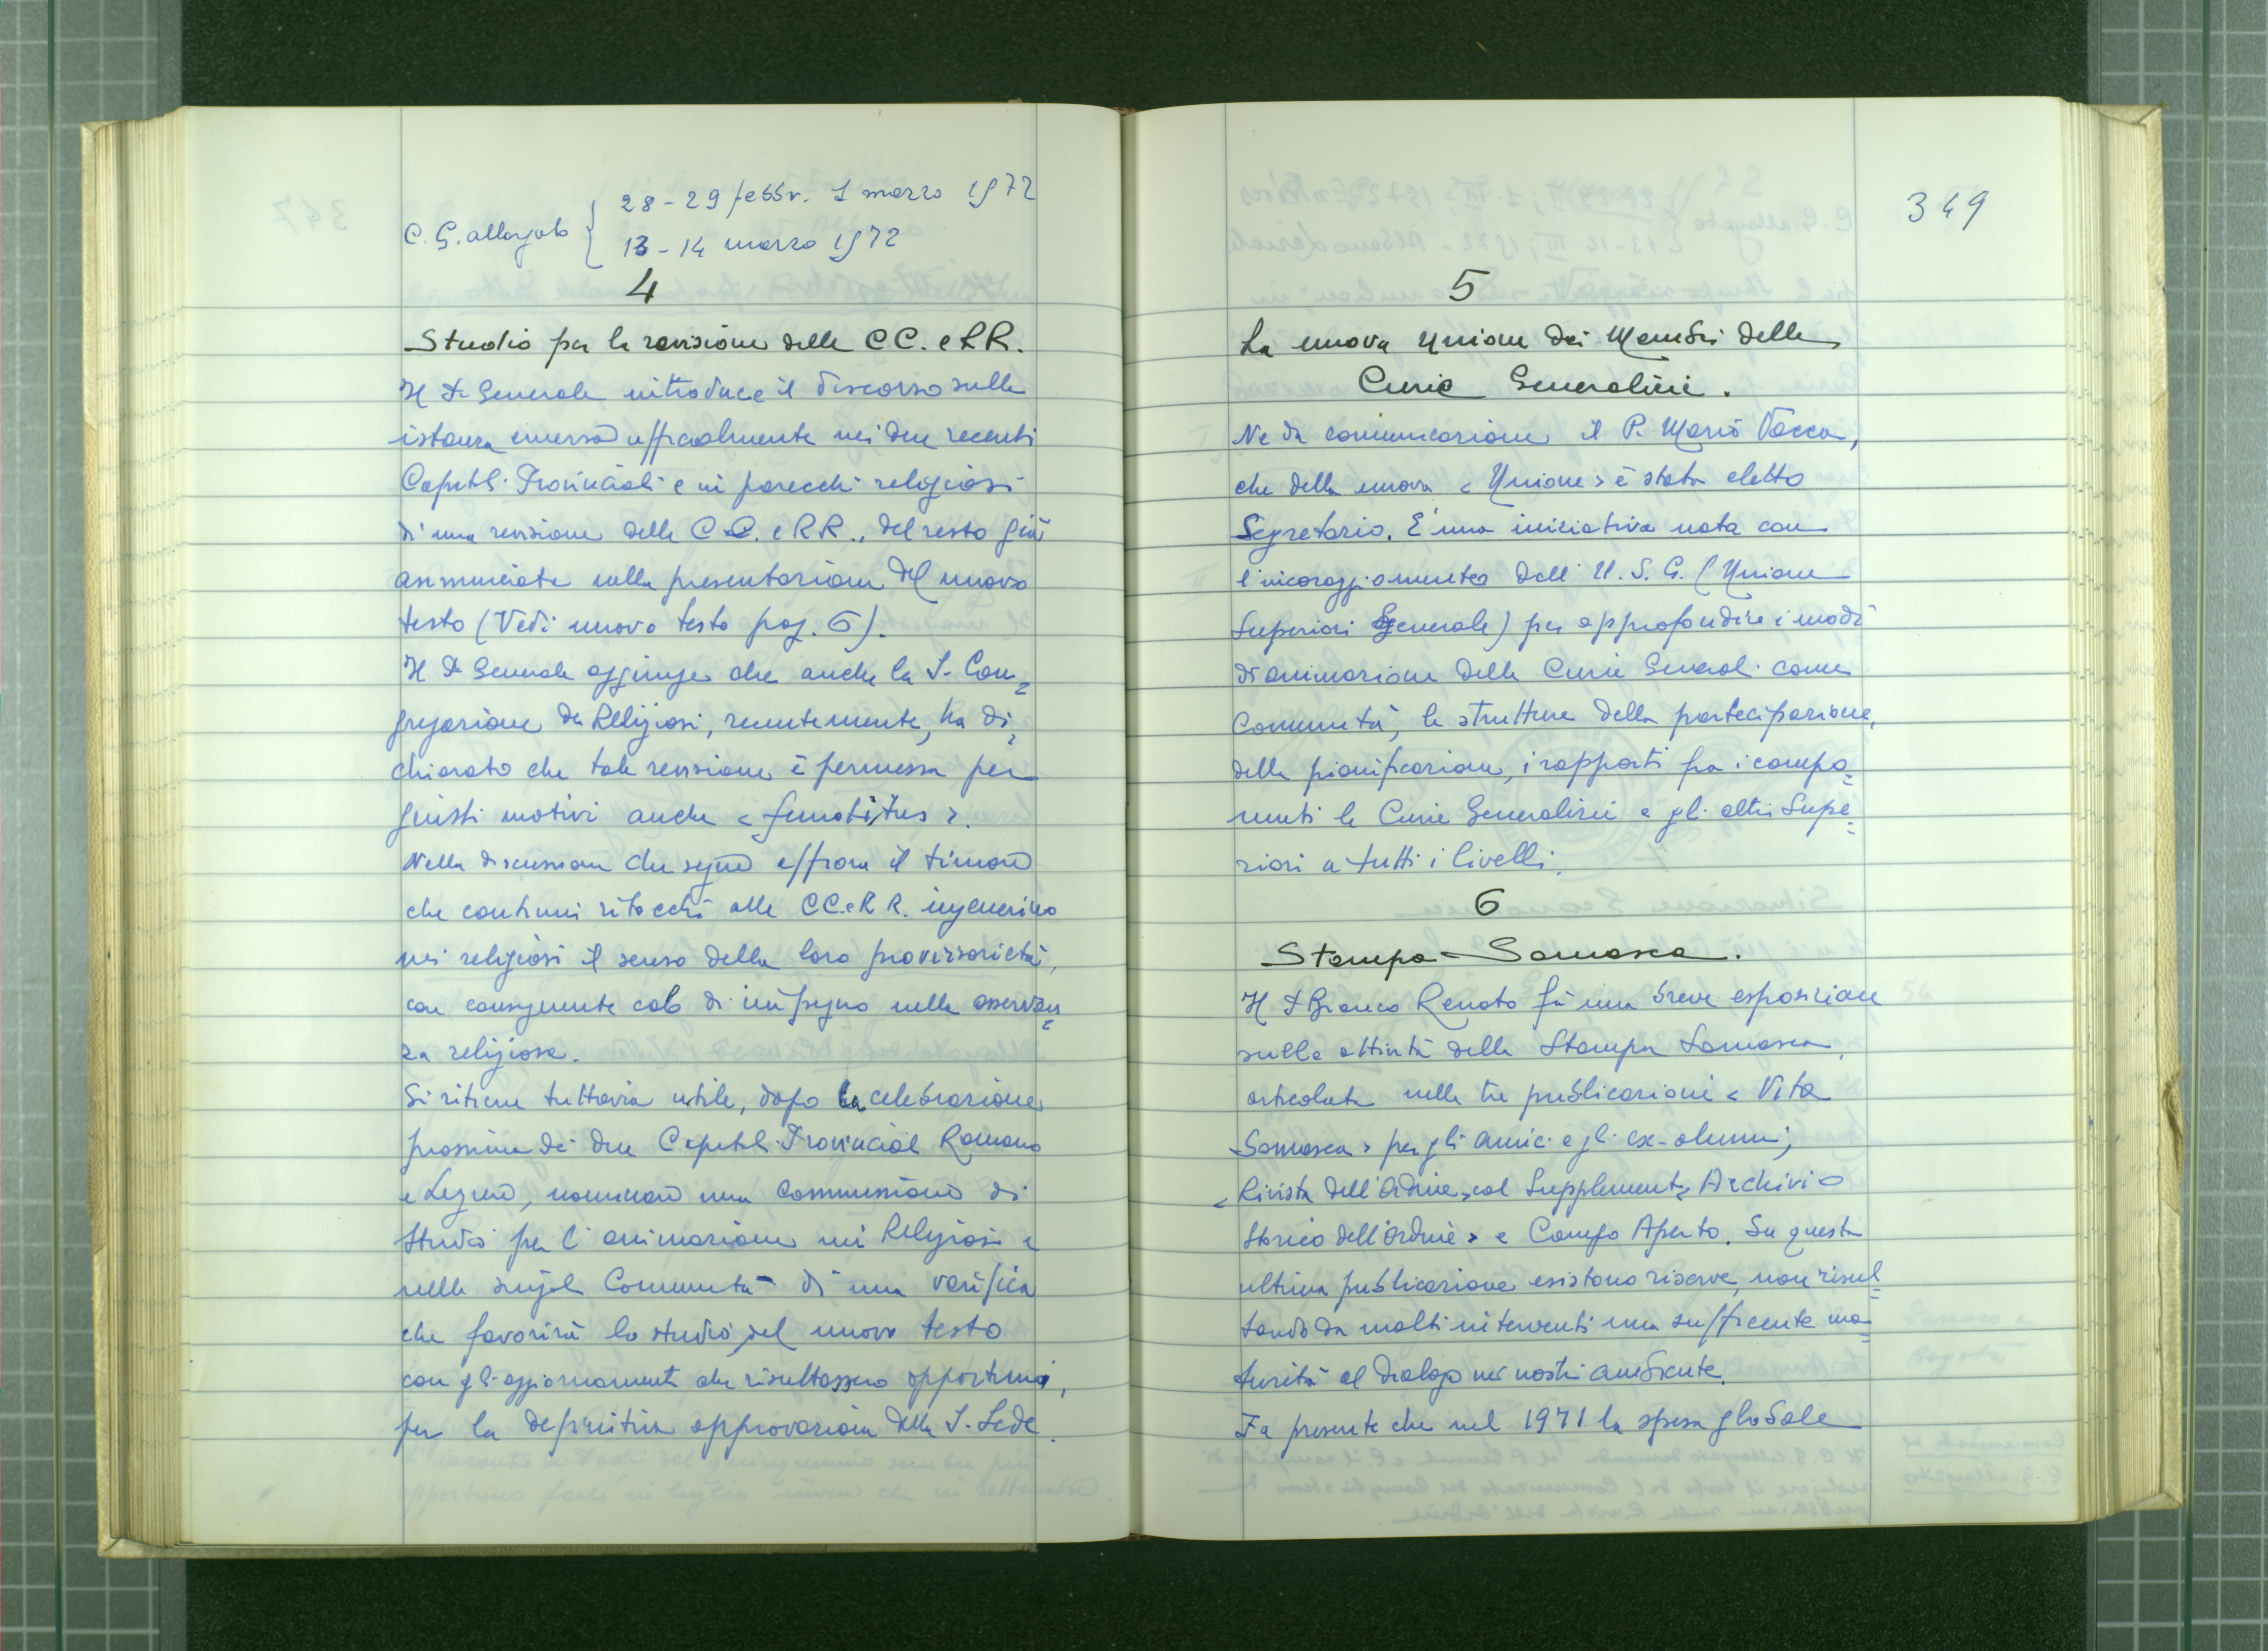 C. G. allargato { 28-29 febbr. 1 marzo 1972
13-14 marzo 1972
4
Studio per la revisione delle CC. e RR.
Il P. Generale introduce il discorso sulla
istanza emersa ufficialmente nei due recenti
Capitoli Provinciali e in parecchi religiosi
di una revisione delle CC. e RR., del resto già
annunciata nella presentazione del nuovo
testo (Vedi nuovo testo pag. 6).
Il P. Generale aggiunge che anche la S. Con=
gregazione dei Religiosi, recentemente, ha di=
chiarato che tale revisione è permessa per
giusti motivi anche
Nella discussione che segue affiora il timore
che continui ritocchi alle CC. e RR. ingenerino
nei religiosi il senso della loro provvisorietà,
con conseguente calo di impegno nella osservan=
za religiosa.
Si ritiene tuttavia utile, dopo la celebrazione
prossima dei due Capitoli Provinciali Romano
e Ligure, nominare una Commissione di
Studio per l'animazione nei Religiosi e
nelle singole Comunità di una verifica
che favorirà lo studio del nuovo testo
con gli aggiornamenti che risultassero opportuni,
per la definitiva approvazione della S. Sede.
349
5
La nuova Unione dei Membri delle
Curie Generalizie.
Ne da comunicazione il P. Mario Vacca,
che della nuova <Unione> è stato eletto
Segretario. E' una iniziativa nata con
l'incoraggiamento dell'U.S.G. (Unione
Superiori Generale) per approfondire i modi
di animazione delle Curie Generali come
Comunità, le strutture della partecipazione,
della pianificazione, i rapporti fra i compo=
nenti le Curie Generalizie e gli altri Supe=
riori a tutti i livelli.
6
Stampa - Somasca.
Il P. Bianco Renato fà una breve esposizione
sulle attività della Stampa Somasca,
articolata nelle tre pubblicazioni < Vita
Somasca > per gli amici e gli ex-alunni;
< Rivista dell'Ordine, col Supplemento Archivio
Storico dell'Ordine > e Campo Aperto. Su questa
ultima pubblicazione esistono riserve, non risul=
tando da molti interventi una sufficiente ma=
turità al dialogo nei nostri ambiente.
Fa presente che nel 1971 la spesa globale